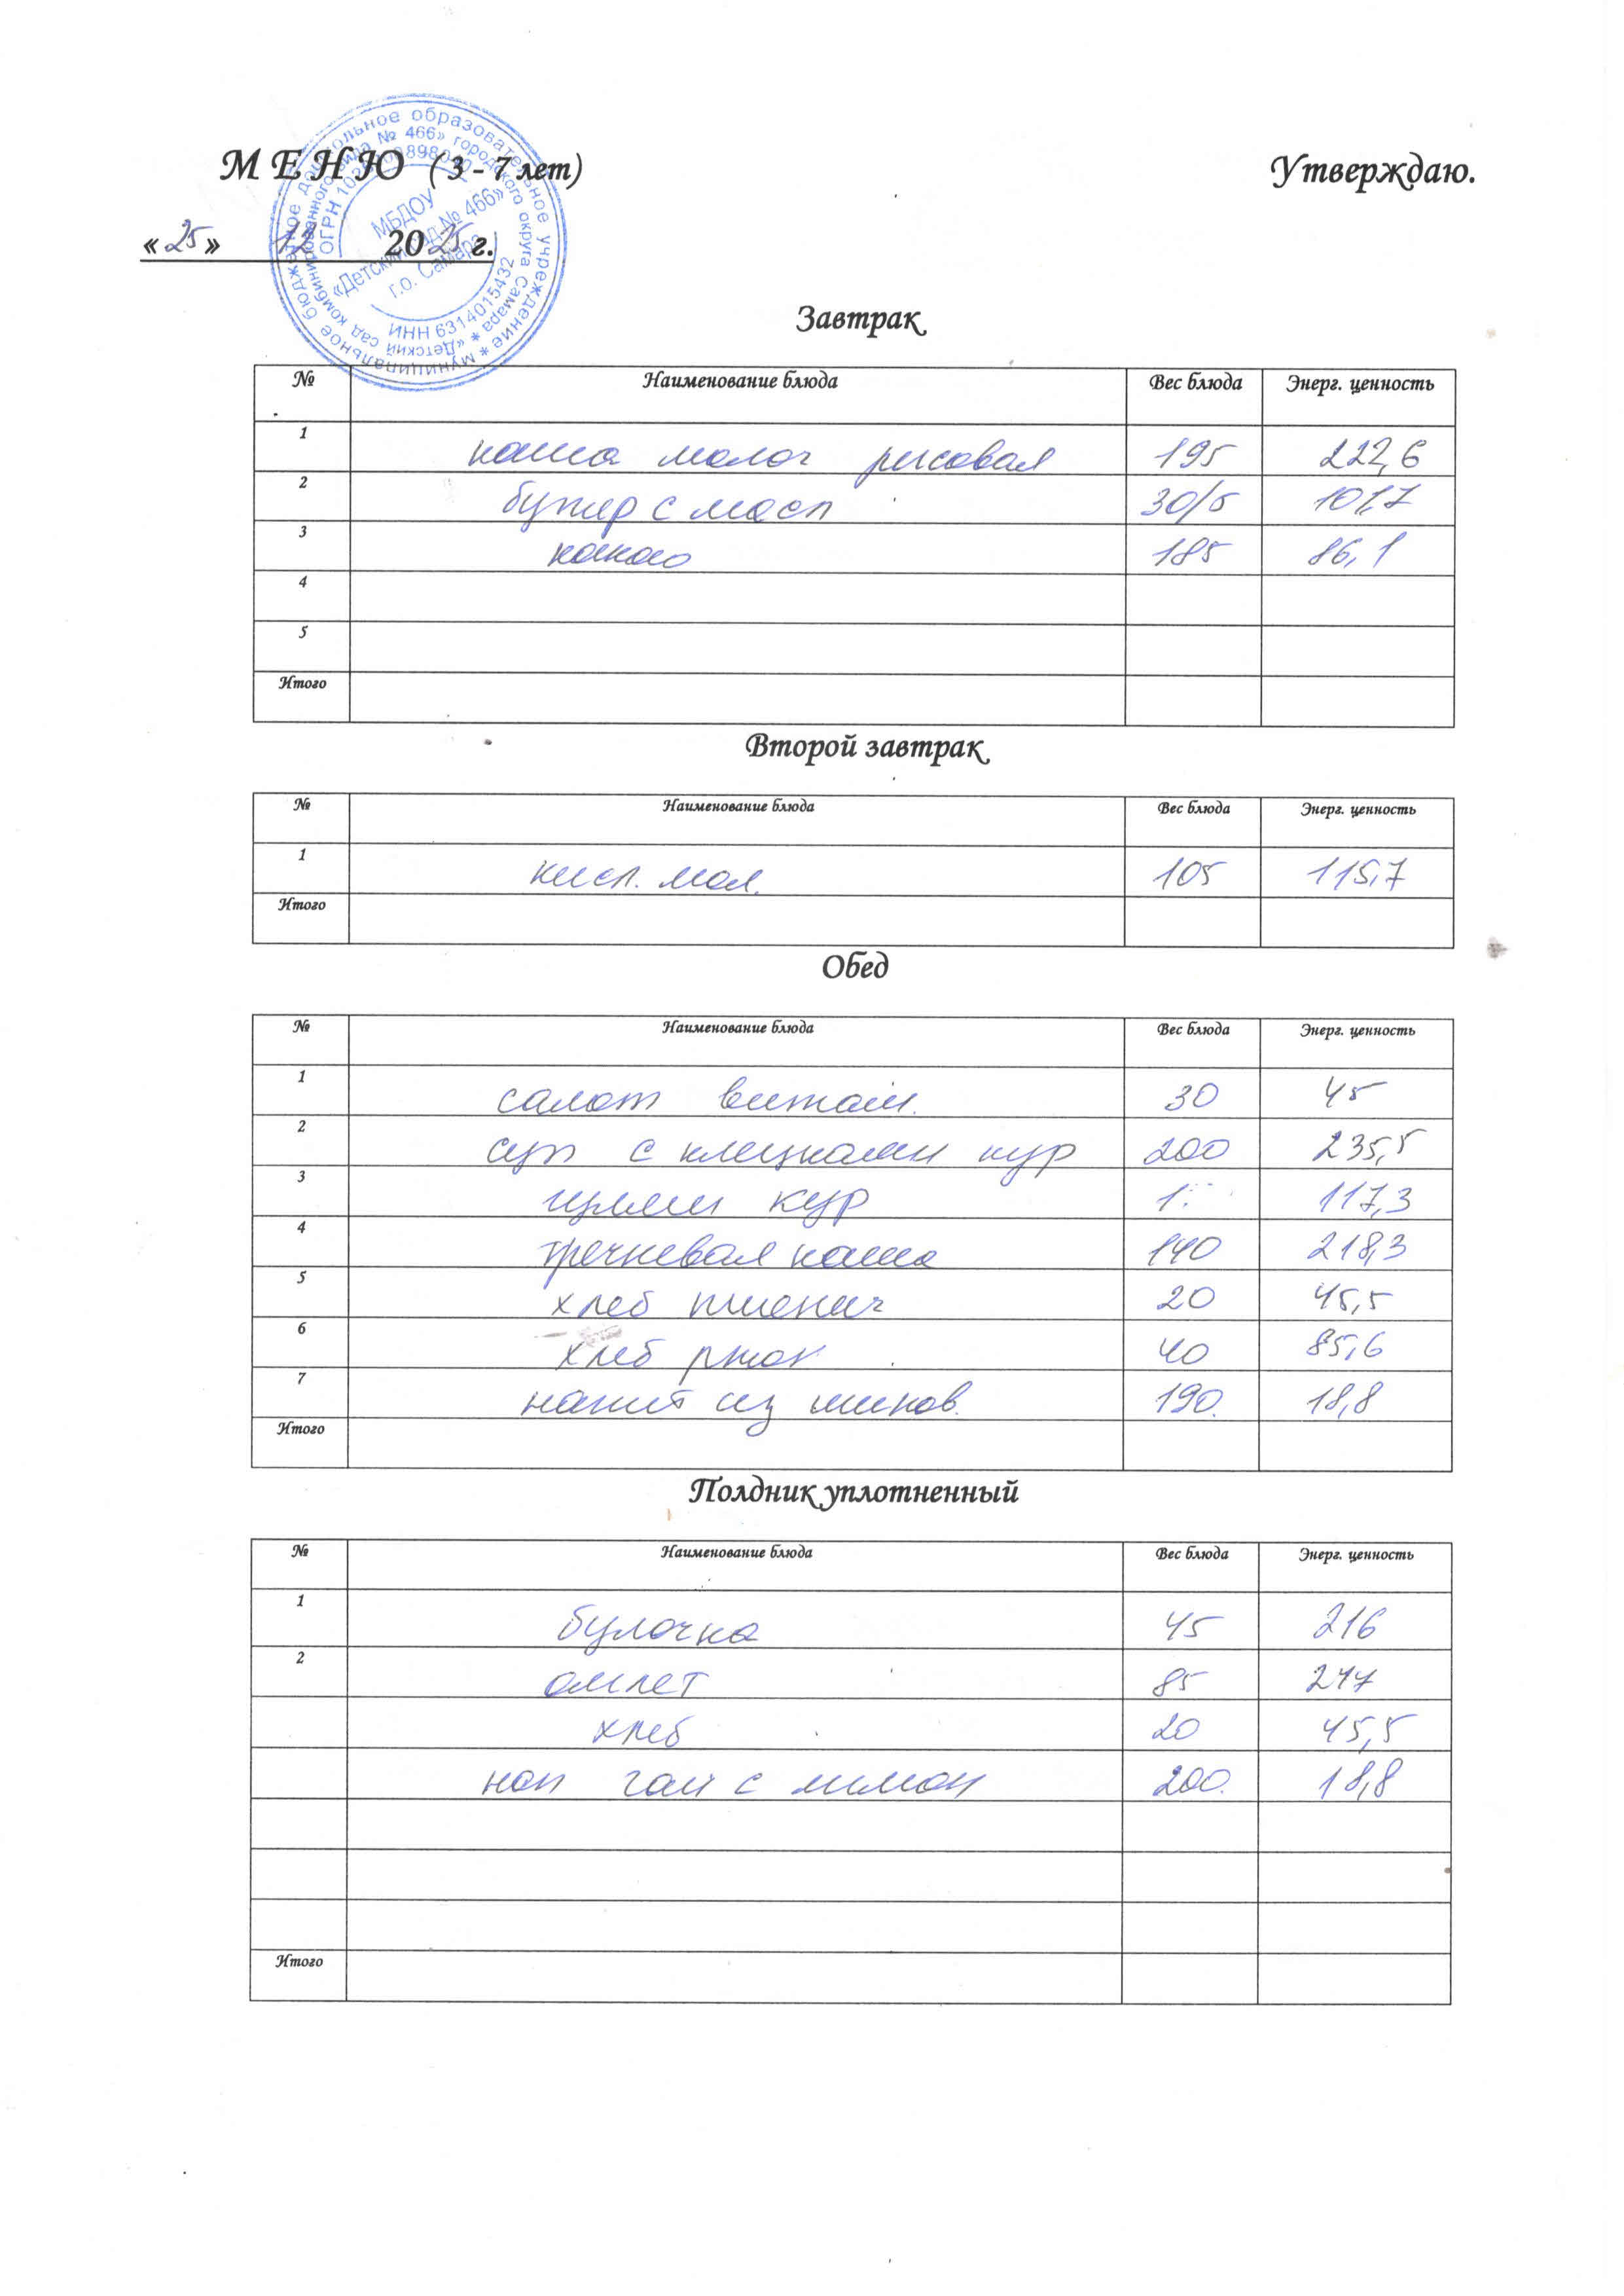 М Е Н Ю ( 3 - 7 лет)
Утверждаю.
« 25 » 12 20 25 г.
муниципальное бюджетное дошкольное образовательное учреждение *
«Детский сад комбинированного вида № 466» городского округа Самара *
ИНН 6314015432
МБДОУ
«Детский сад № 466»
г.о. Самара
Завтрак
№ Наименование блюда Вес блюда Энерг. ценность
1 каша молоч рисовая 195 222,6
2 бутер с масл 30/5 101,7
3 какао 185 86,1
4
5
Итого
Второй завтрак
№ Наименование блюда Вес блюда Энерг. ценность
1 кисл. мол. 105 115,7
Итого
Обед
№ Наименование блюда Вес блюда Энерг. ценность
1 салат витам. 30 45
2 суп с клецками кур 200 235,5
3 кур 117,3
4 гречневая каша 140 218,3
5 хлеб пшенич 20 45,5
6 хлеб ржан 40 85,6
7 напит из шипов. 190. 18,8
Итого
Полдник уплотненный
№ Наименование блюда Вес блюда Энерг. ценность
1 булочка 45 216
2 омлет 85 247
хлеб 20 45,5
нап чай с лимон 200. 18,8
Итого